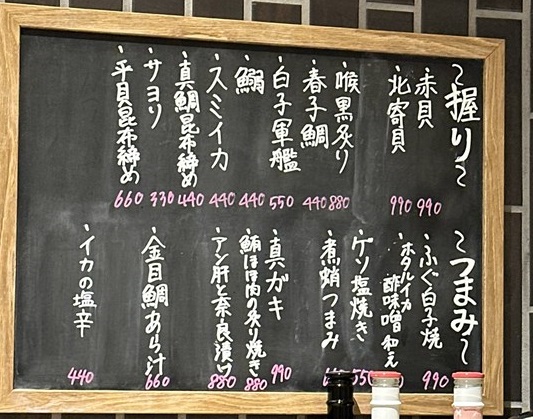 〜握り〜
・赤貝 990
・北寄貝 990
・喉黒炙り 880
・春子鯛 440
・白子軍艦 550
・鰯 440
・スミイカ 440
・真鯛昆布締め 440
・サヨリ 330
・平貝昆布締め 660
〜つまみ〜
・ふぐ白子焼 990
・ホタルイカ
酢味噌和え
・ゲソ塩焼き 550
・煮蛸つまみ
・真ガキ 990
・鮪ほほ肉の炙り焼き 880
・アン肝と奈良漬け 880
・金目鯛あら汁 660
・イカの塩辛 440